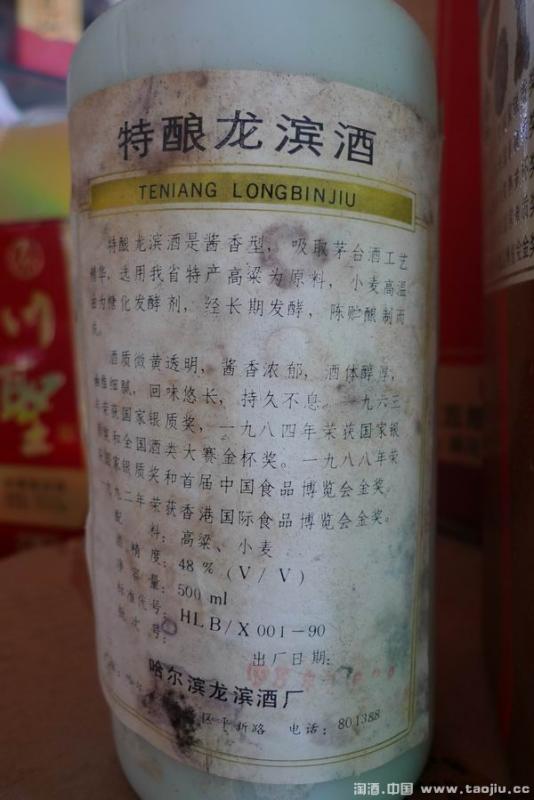 特酿龙滨酒
TENIANG LONGBINJIU
特酿龙滨酒是酱香型，吸取茅台酒工艺
精华，选用我省特产高粱为原料，小麦高温
曲为糖化发酵剂，经长期发酵，陈贮酿制而
成。
酒质微黄透明，酱香浓郁，酒体醇厚，
幽雅细腻，回味悠长，持久不息。一九六三
年荣获国家银质奖，一九八四年荣获国家银
质奖和全国酒类大赛金杯奖。一九八八年荣
获国家银质奖和首届中国食品博览会金奖。
一九九二年荣获香港国际食品博览会金奖。
配 料：高粱、小麦
酒精度：48%(V/V)
净容量：500ml
标准代号：HLB/X001-90
批次号：
出厂日期：
哈尔滨龙滨酒厂
区 新路 电话：801388
川
聖
淘酒.中国 www.taojiu.cc